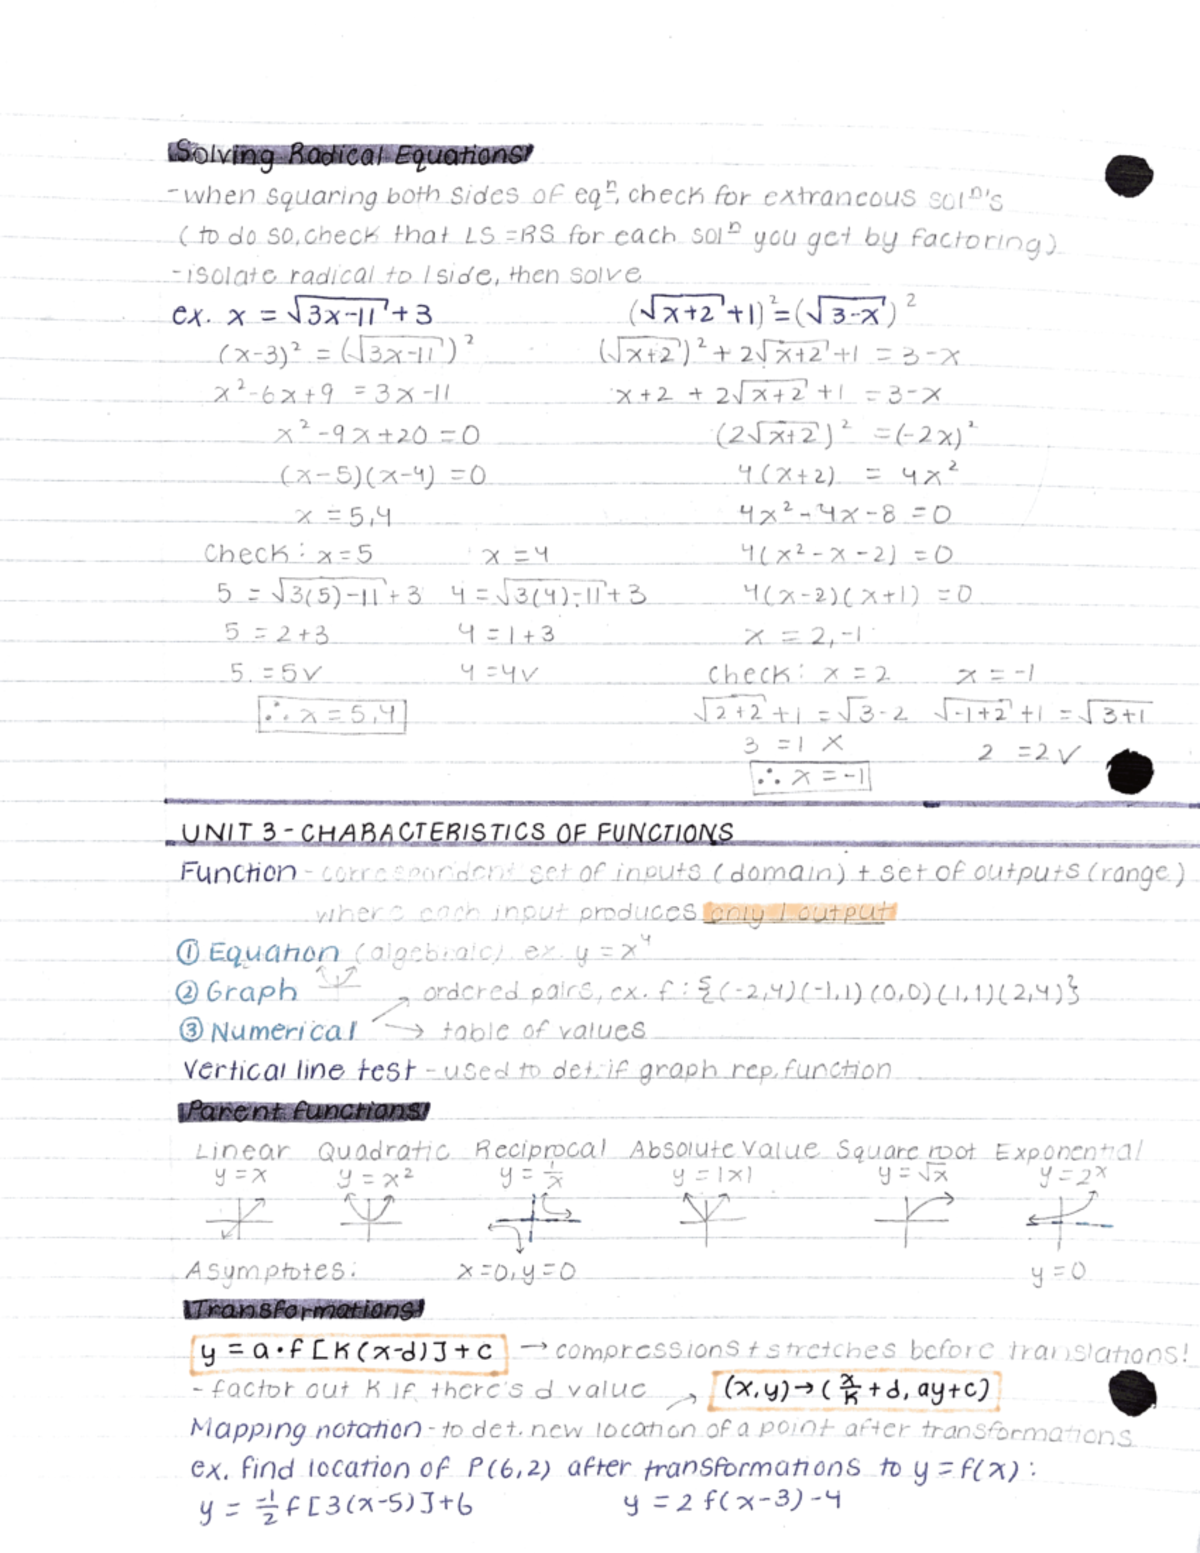 Solving Radical Equations
-when squaring both sides of eqⁿ, check for extraneous solⁿ's
(to do so, check that LS=RS for each solⁿ you get by factoring)
-isolate radical to 1 side, then solve
ex. x = √(3x-11) + 3
(x-3)² = (√(3x-11))²
x²-6x+9 = 3x-11
x²-9x+20 = 0
(x-5)(x-4) = 0
x = 5,4
Check: x=5 x=4
5 = √(3(5)-11) + 3 4 = √(3(4)-11) + 3
5 = 2+3 4 = 1+3
5 = 5✓ 4 = 4✓
∴ x = 5,4
(√(x+2) + 1)² = (√(3-x))²
(√(x+2))² + 2√(x+2) + 1 = 3-x
x+2 + 2√(x+2) + 1 = 3-x
(2√(x+2))² = (-2x)²
4(x+2) = 4x²
4x²-4x-8 = 0
4(x²-x-2) = 0
4(x-2)(x+1) = 0
x = 2,-1
Check: x = 2 x = -1
√(2+2) + 1 = √(3-2) √(-1+2) + 1 = √(3+1)
3 = 1 X 2 = 2✓
∴ x = -1
UNIT 3 - CHARACTERISTICS OF FUNCTIONS
Function - correspondent set of inputs (domain) + set of outputs (range)
where each input produces only 1 output
① Equation (algebraic). ex. y = x⁴
② Graph
→ ordered pairs, ex. f: {(-2,4)(-1,1)(0,0)(1,1)(2,4)}
③ Numerical → table of values
Vertical line test - used to det. if graph rep. function
Parent functions
Linear Quadratic Reciprocal Absolute Value Square root Exponential
y=x y=x² y=1/x y=|x| y=√x y=2ˣ
Asymptotes: x=0, y=0 y=0
Transformations
y = a•f[k(x-d)]+c → compressions + stretches before translations!
- factor out k if there's d value → (x,y)→(x/k+d, ay+c)
Mapping notation - to det. new location of a point after transformations
ex. find location of P(6,2) after transformations to y=f(x):
y = -1/2 f[3(x-5)]+6 y = 2f(x-3)-4